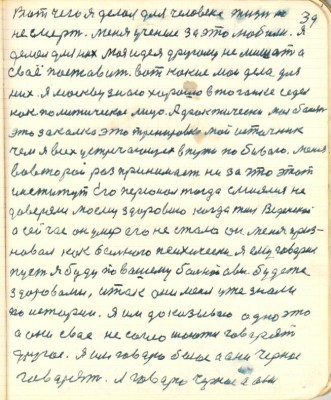 Вот чего я делал для человека жизни 39
не смерт. меня ученые за это любили. я
делал для них моя идея другому не мешат а
своё поставит. вот какие мои дела для
них. Я москву знаю хорошо в
как политическое лицо. А практически моя
это закалка это тренировка мой источник
чем я всех встречающих в пути побываю. меня
во второй раз принимает ни за это этот
институт его персонал тогда смиялис не
доверяли моему здоровию когда был Веденской
а сейчас он умер его не стало он меня приз-
навал как больного психически я ему говорил
пуст я буду по вашему больной а вы будете
здоровыми, итак они меня уже знали
по истории. Я им доказываю одно это
а они свае не согло говорят
другое. Я им говорю белое а они черное
говорят. А говорю черное а они